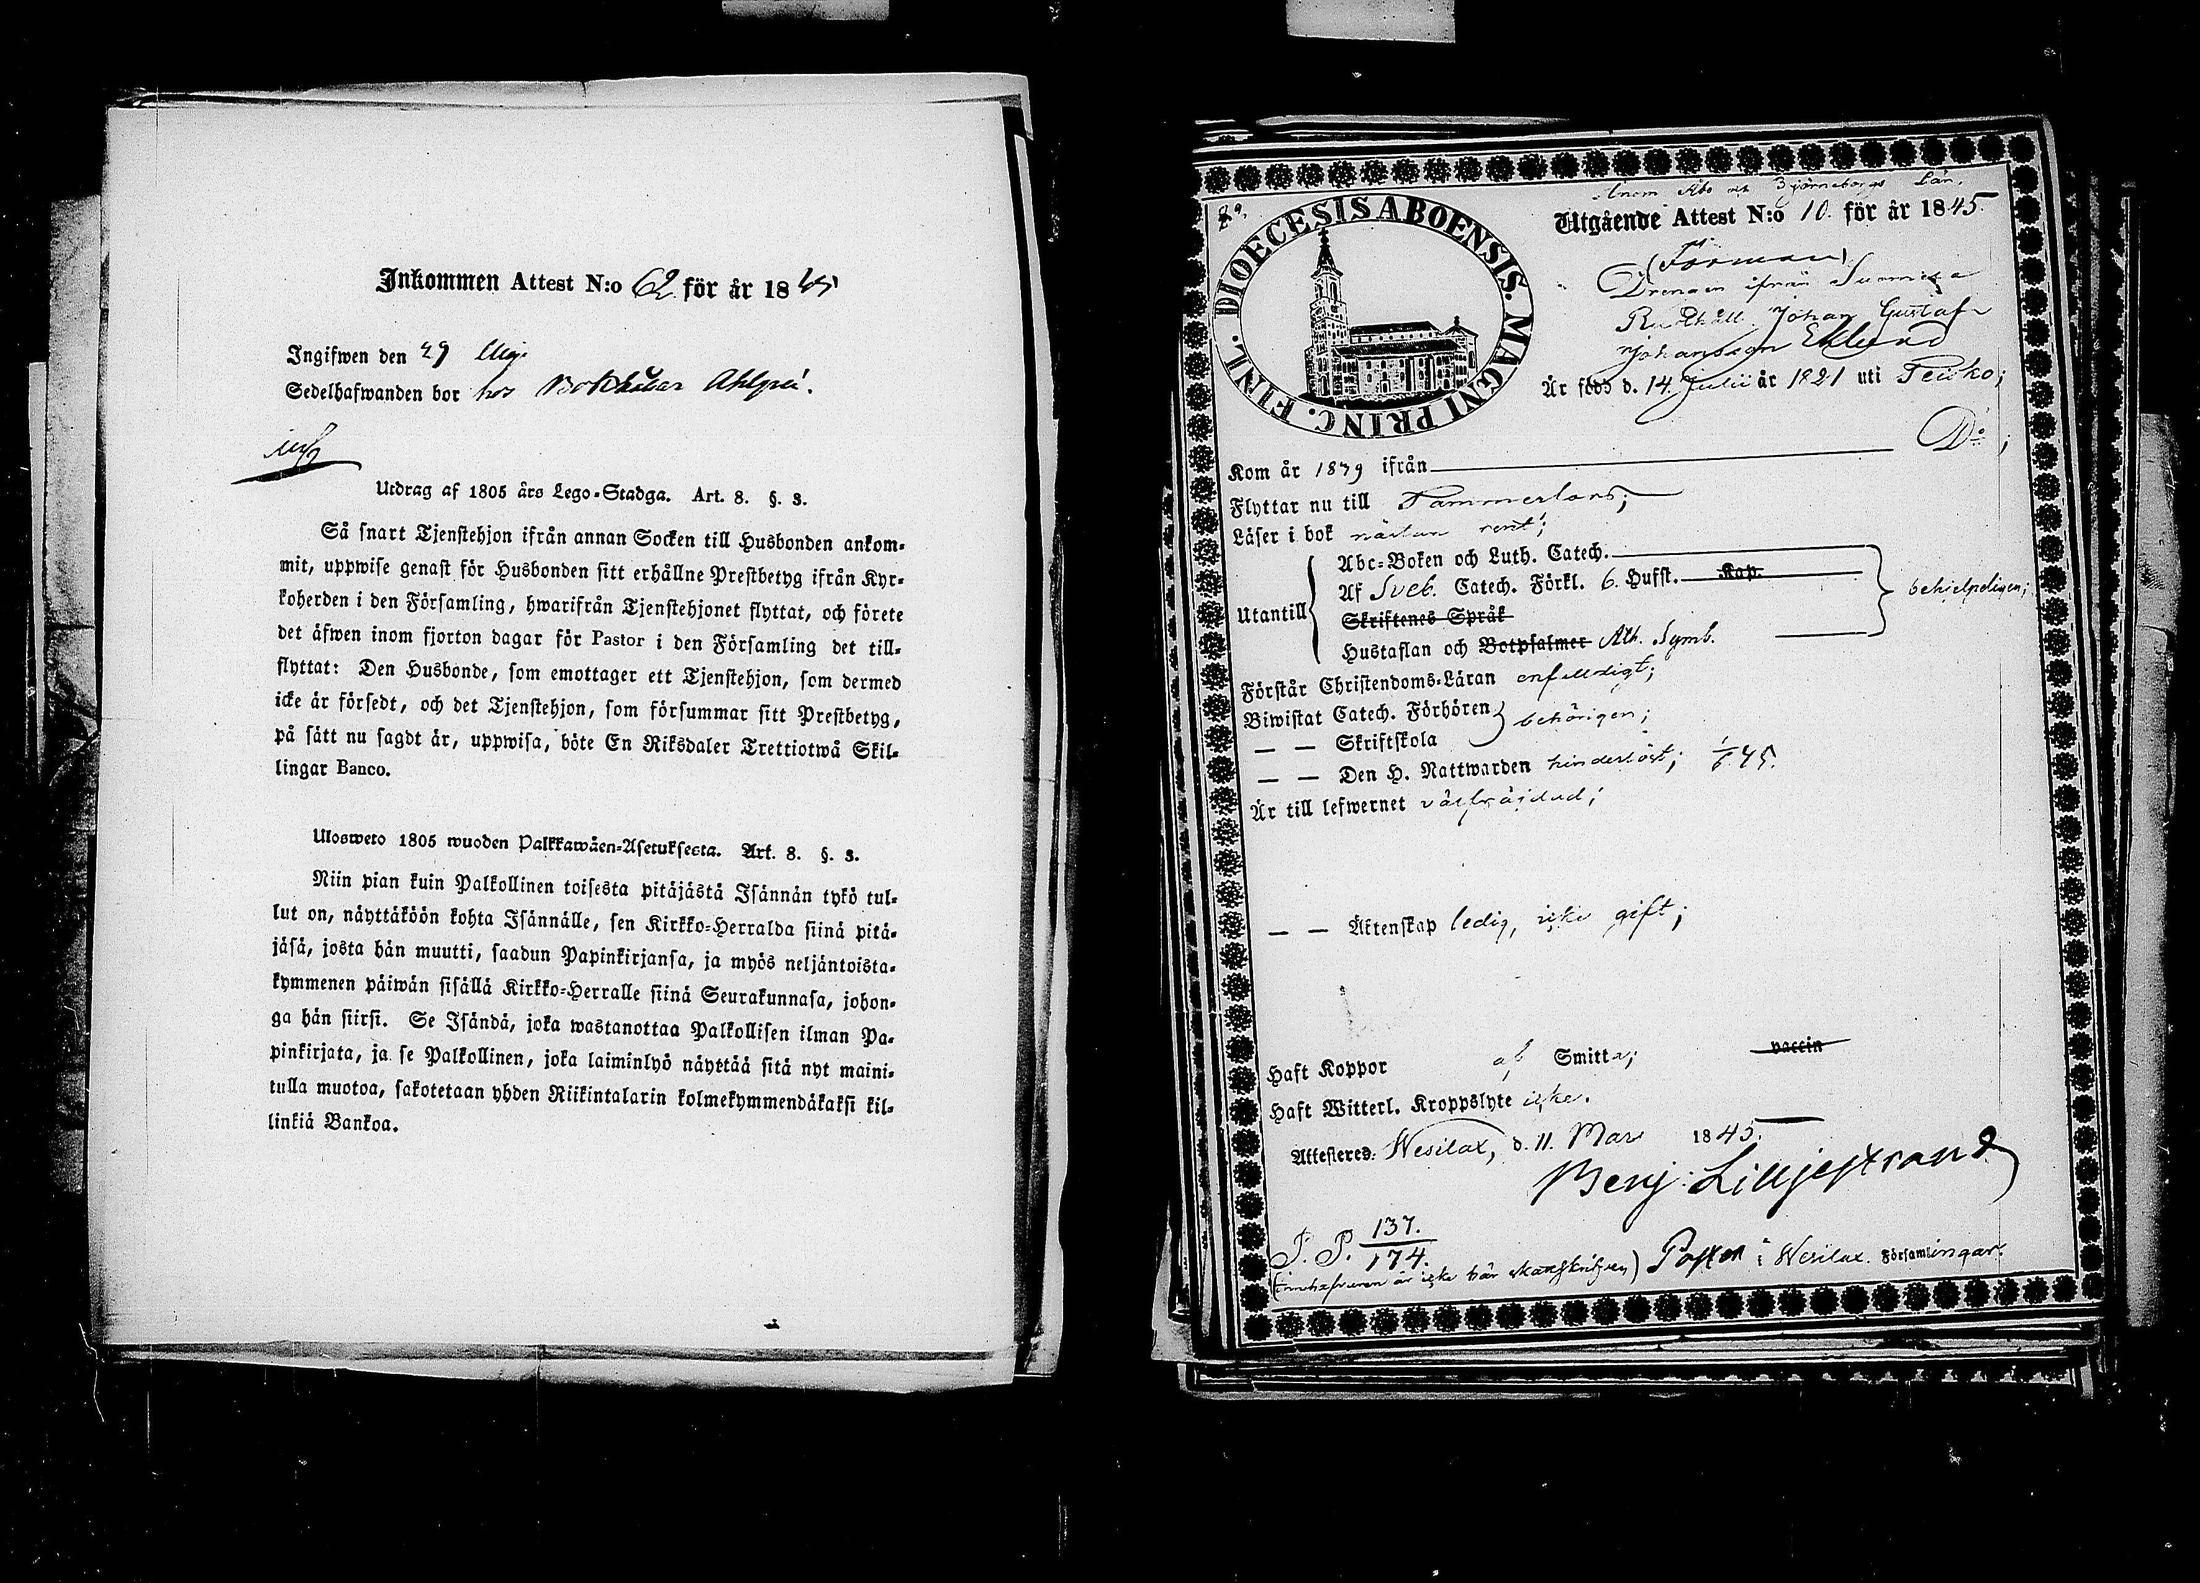 Inkommen Attest N:o 62 för år 1845
Ingifwen den 29 Maji
Sedelhafwanden bor hos Bokhållar Ahlgren.
Utdrag af 1805 års Lego-Stadga. Art. 8. §. 3.
Så snart Tjenstehjon ifrån annan Socken till Husbonden ankom-
mit, uppwise genast för Husbonden sitt erhållne Prestbetyg ifrån Kyr-
koherden i den Församling, hwarifrån Tjenstehjonet flyttat, och förete
det äfwen inom fjorton dagar för Pastor i den Församling det till-
flyttat: Den Husbonde, som emottager ett Tjenstehjon, som dermed
icke är försedt, och det Tjenstehjon, som försummar sitt Prestbetyg,
på sätt nu sagdt är, uppwisa, böte En Riksdaler Trettiotwå Skil-
lingar Banco.
Ulosweto 1805 wuoden Palkkawäen-Asetuksesta. Art. 8. §. 3.
Niin pian kuin Palkollinen toisesta pitäjästä Isännän tykö tul-
lut on, näyttäköön kohta Isännälle, sen Kirkko-Herralda siinä pitä-
jäsä, josta hän muutti, saadun Papinkirjansa, ja myös neljäntoista-
kymmenen päiwän sisällä Kirkko-Herralle siinä Seurakunnasa, johon-
ga hän siirsi. Se Isändä, joka wastanottaa Palkollisen ilman Pa-
pinkirjata, ja se Palkollinen, joka laiminlyö näyttää sitä nyt maini-
tulla muotoa, sakotetaan yhden Riikintalarin kolmekymmendäkaksi kil-
linkiä Bankoa.
DIOECESIS ABOENSIS. MAGNI PRINC. FINL.
inom Åbo och Björneborgs Län.
Utgående Attest N:o 10. för år 1845
(Förman)
Drengen ifrån
Rusthåll Johan Gustaf
Johansson Eklund
Är född d. 14. Julii år 1821 uti
D:o;
Kom år 1839 ifrån
Flyttar nu till Tammerfors;
Läser i bok nästan rent;
Utantill
Abc-Boken och Luth. Catech.
Af Sveb. Catech. Förkl. 6. Hufst. Kap.
Skriftenes Språk
Hustaflan och Botpsalmer Ath. Symb.
behjelpeligen;
Förstår Christendoms-Läran enfaldigt;
Biwistat Catech. Förhören behörigen;
— — Skriftskola
— — Den H. Nattwarden hinderlöst; 1/1 45.
Är till lefwernet välfräjdad;
— — Äktenskap ledig, icke gift;
Haft Koppor af Smitta; vaccin
Haft Witterl. Kroppslyte icke.
Attesteres: Wesilax, d. 11. Mars 1845.
Benj: Lilljestrand
P. P. 137.
174.
Pastor i Wesilax Församlingar.